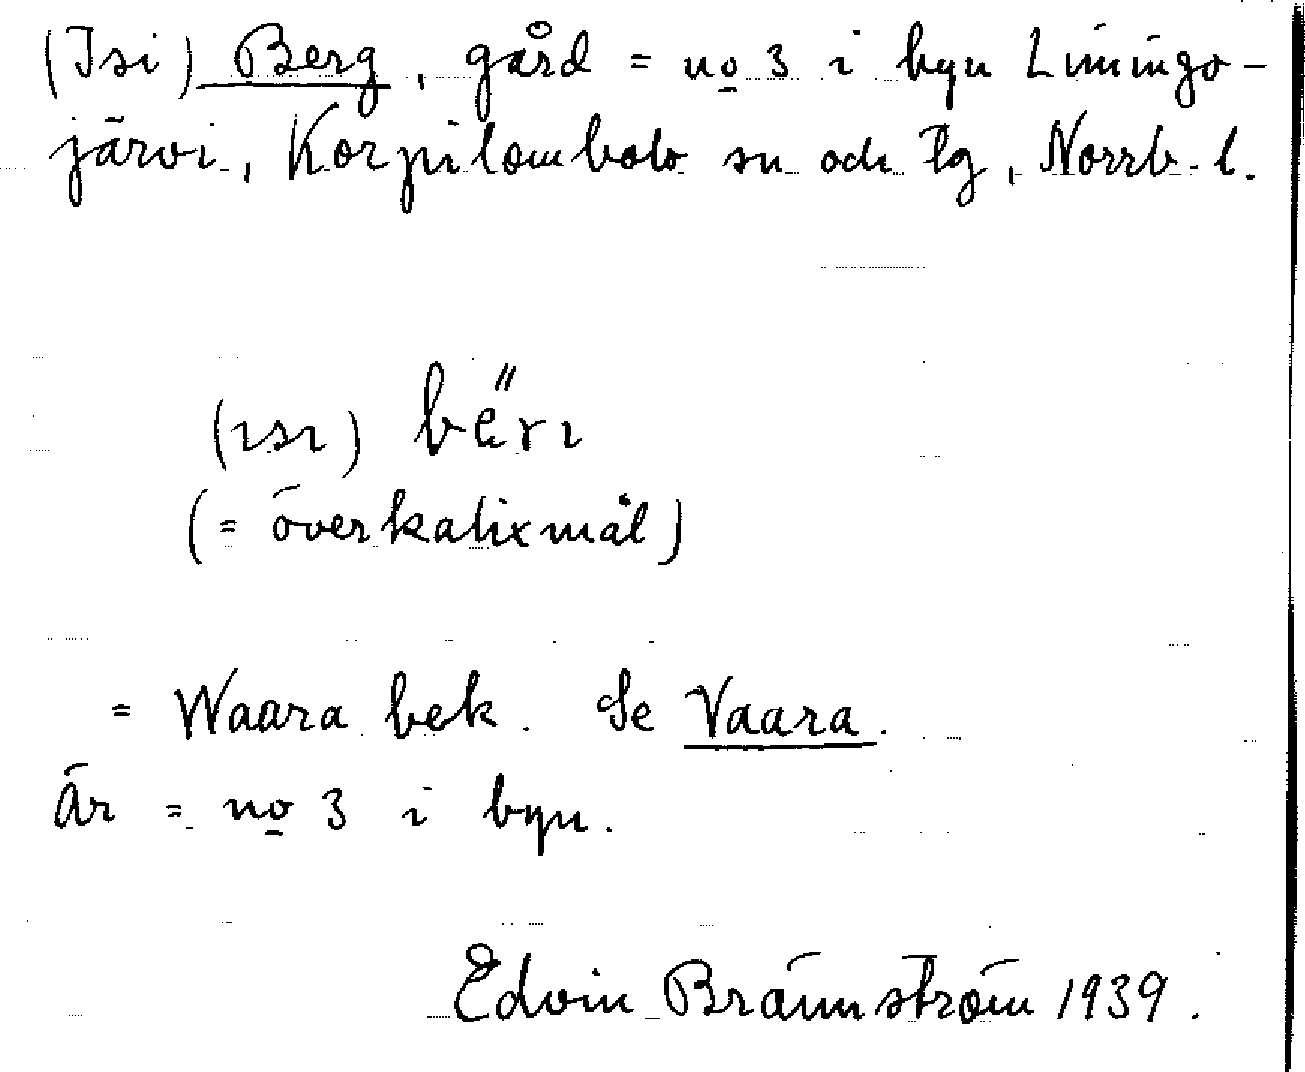 (Isi) Berg, gård = no 3 i byn Liningo-
järvi, Korpilombolo sn och tg, Norrb. l.
(ısı) bërı
(= överkalixmål)
= Waara bek. Se Vaara.
Är = no 3 i byn.
Edvin Brännström 1939.